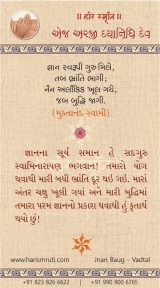 ॥ હરિ સ્મૃતિ ॥
એજ અરજી દયાનિધિ દેવ
જ્ઞાન સ્વરૂપી ગુરુ મિલે,
તબ ભ્રાંતિ ભાગી;
નૈન અલૌકિક ખૂલ ગયે,
જબ બુદ્ધિ જાગી.
(મુક્તાનંદ સ્વામી)
જ્ઞાનના સૂર્ય સમાન હે સદગુરુ
સ્વામિનારાયણ ભગવાન! તમારો યોગ
થવાથી મારી બધી ભ્રાંતિ દૂર થઇ ગઇ. મારાં
અંતર ચક્ષુ ખૂલી ગયાં અને મારી બુદ્ધિમાં
તમારા પરમ જ્ઞાનનો પ્રકાશ થવાથી હું કૃતાર્થ
થયો છું!
www.harismruti.com
Jnan Baug - Vadtal
+91 823 826 6622
+91 990 900 6765